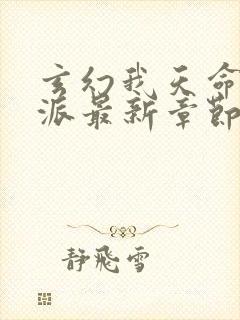 玄幻我天命
派最新章節
靜飛雪